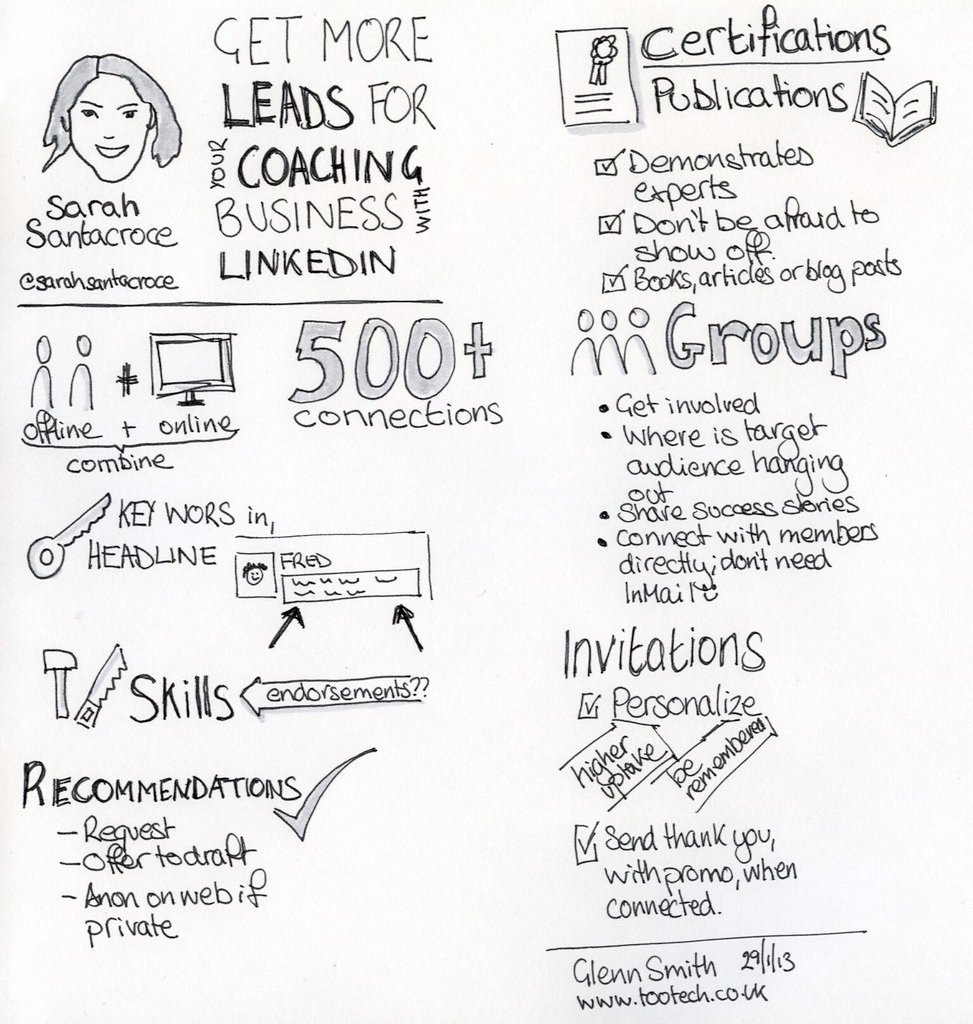 GET MORE
LEADS FOR
YOUR COACHING
BUSINESS WITH
LINKEDIN
Sarah
Santacroce
@sarahsantacroce
offline + online
combine
500+
connections
KEY WORS in,
HEADLINE
FRED
Skills
endorsements??
RECOMMENDATIONS
- Request
- Offer to draft
- Anon on web if
private
Certifications
Publications
Demonstrates
experts
Don't be afraid to
show off.
Books, articles or blog posts
Groups
• Get involved
• Where is target
audience hanging
out
• Share success stories
• Connect with members
directly; don't need
InMail
Invitations
Personalize
higher
uptake
be
remembered
Send thank you,
with promo, when
connected.
Glenn Smith 29/1/13
www.tootech.co.uk